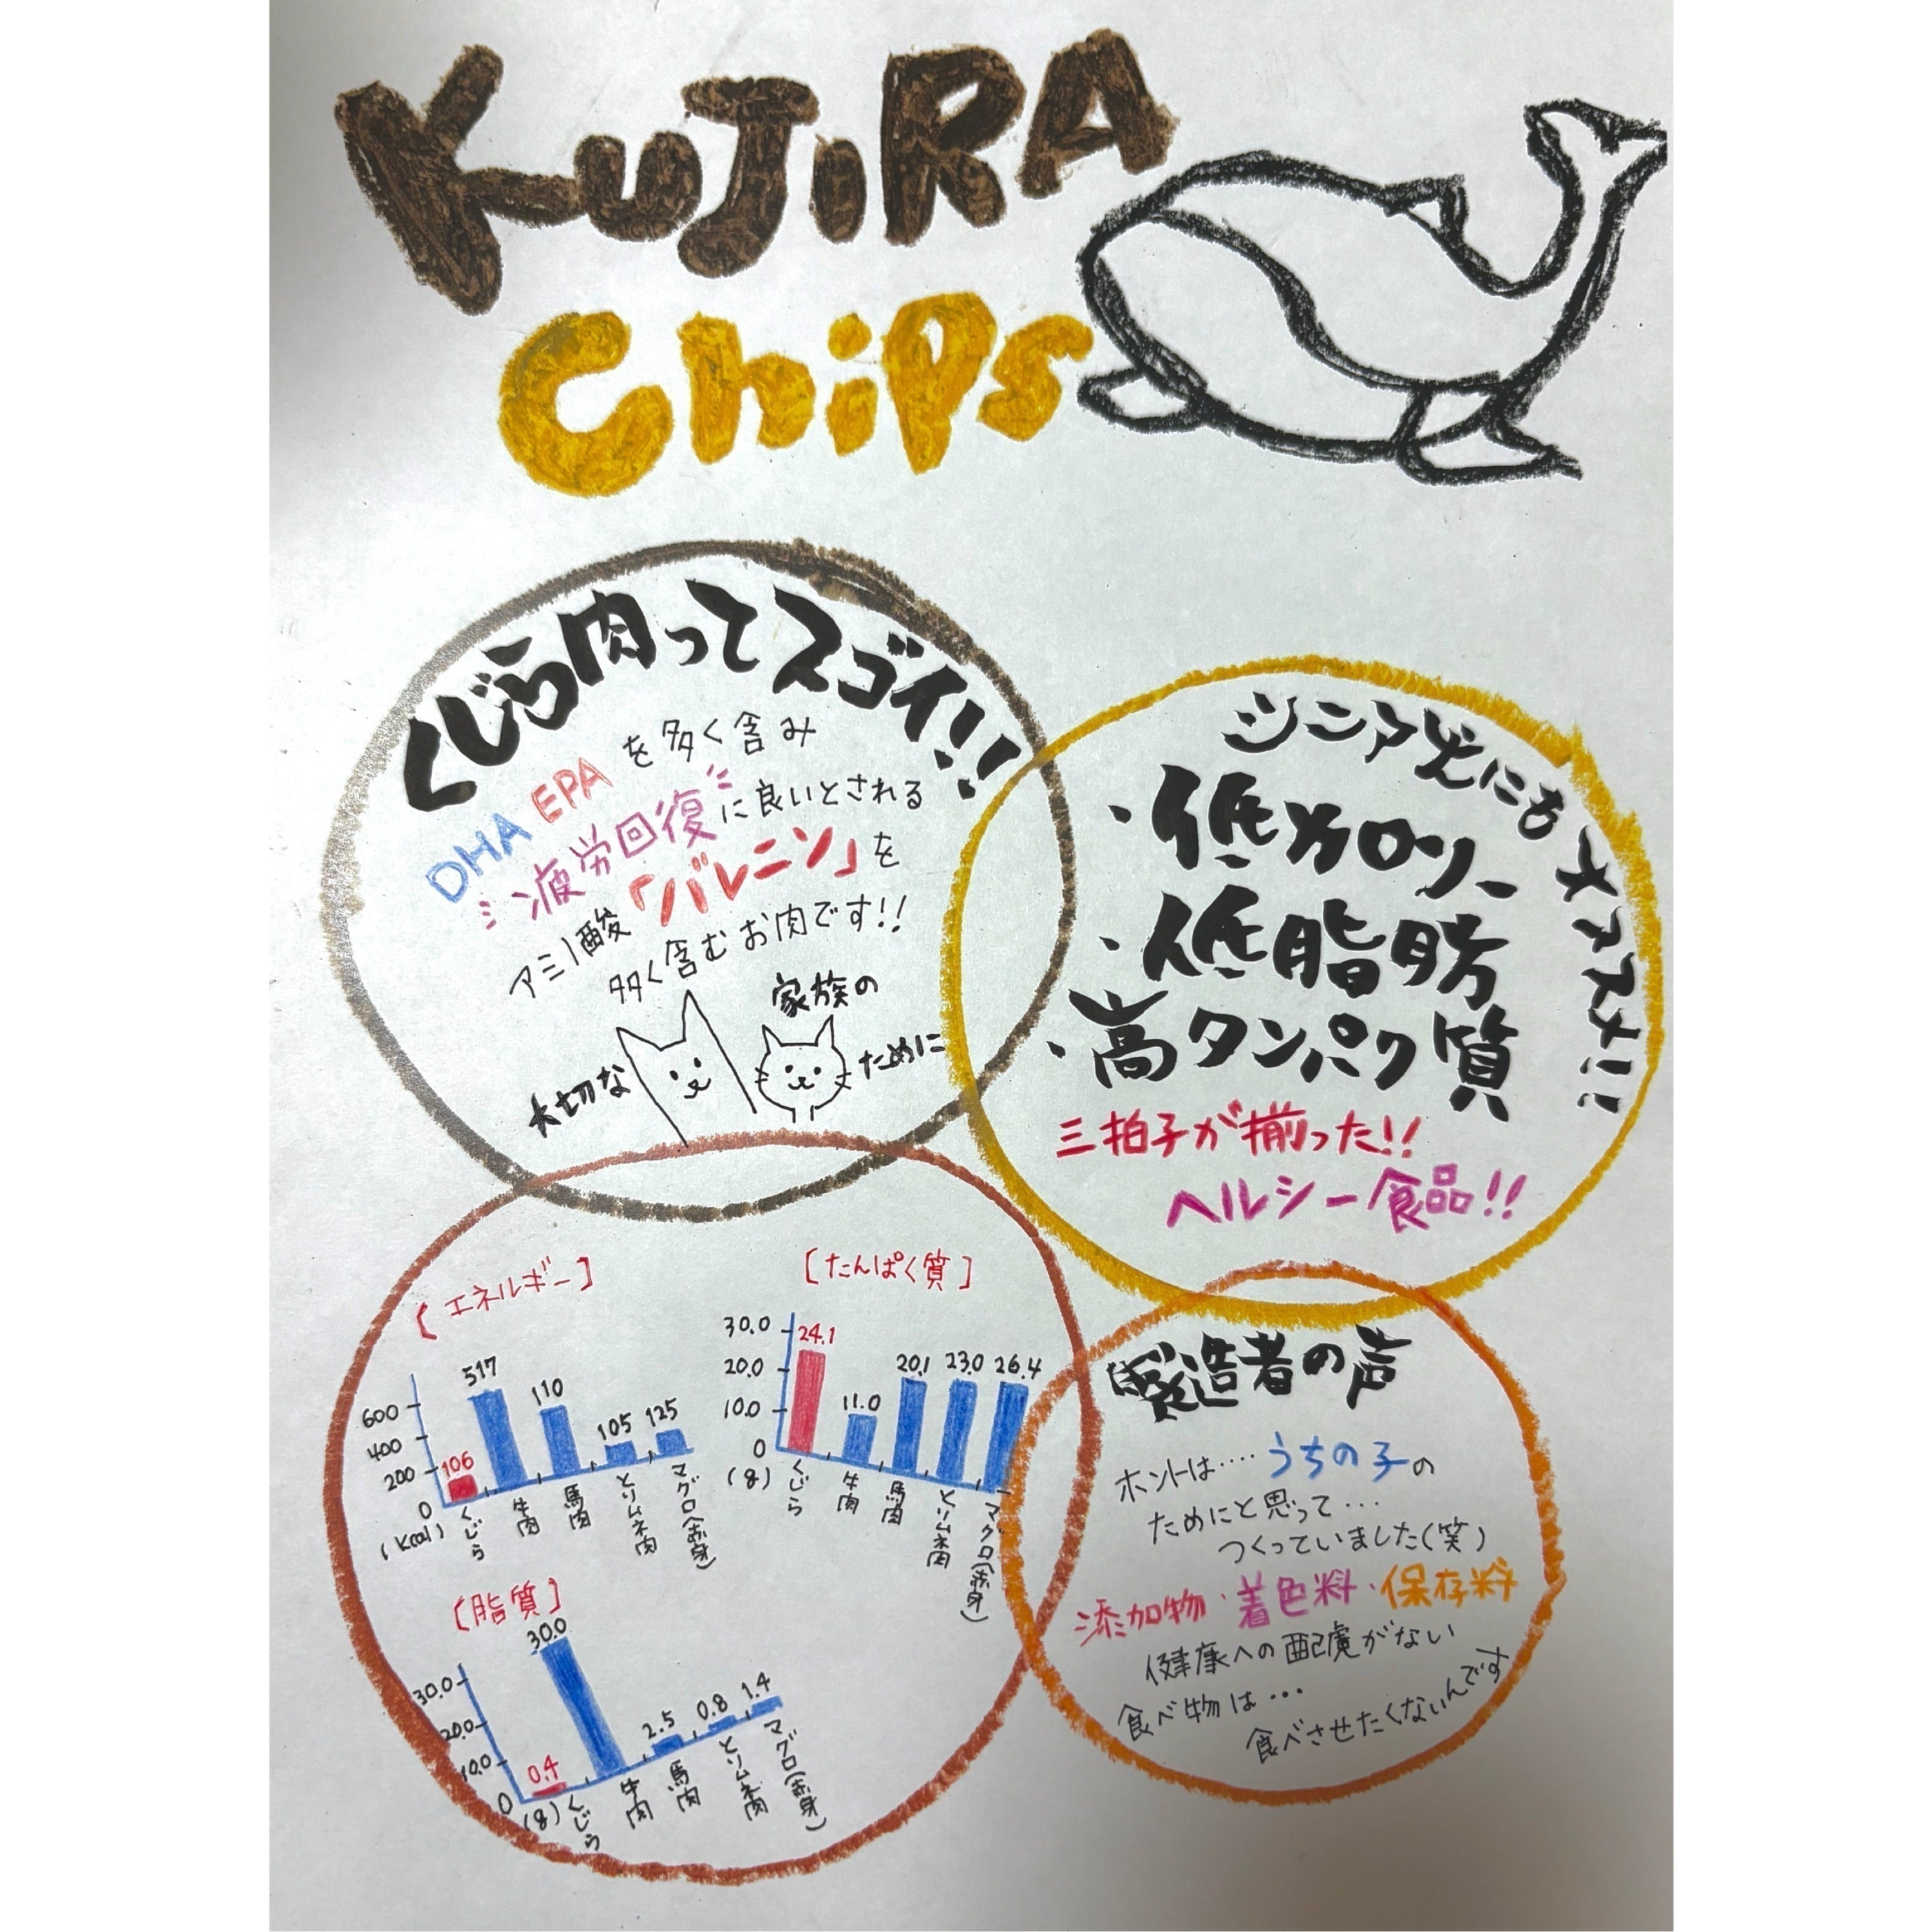 KUJIRA
Chips
くじら肉ってスゴイ!!
DHA EPA を多く含み
疲労回復に良いとされる
アミノ酸「バレニン」を
多く含むお肉です!!
大切な
家族の
ために
シニア犬にもオススメ!!
・低カロリー
・低脂肪
・高タンパク質
三拍子が揃った!!
ヘルシー食品!!
[エネルギー]
600
400
200
0
(kcal)
106
517
110
105
125
くじら
牛肉
馬肉
とりムネ肉
マグロ(赤身)
[たんぱく質]
30.0
20.0
10.0
0
(g)
24.1
11.0
20.1
23.0
26.4
くじら
牛肉
馬肉
とりムネ肉
マグロ(赤身)
[脂質]
30.0
20.0
10.0
0
(g)
0.4
30.0
2.5
0.8
1.4
くじら
牛肉
馬肉
とりムネ肉
マグロ(赤身)
製造者の声
ホントは‥‥うちの子の
ためにと思って…
つくっていました(笑)
添加物・着色料・保存料
健康への配慮がない
食べ物は…
食べさせたくないんです